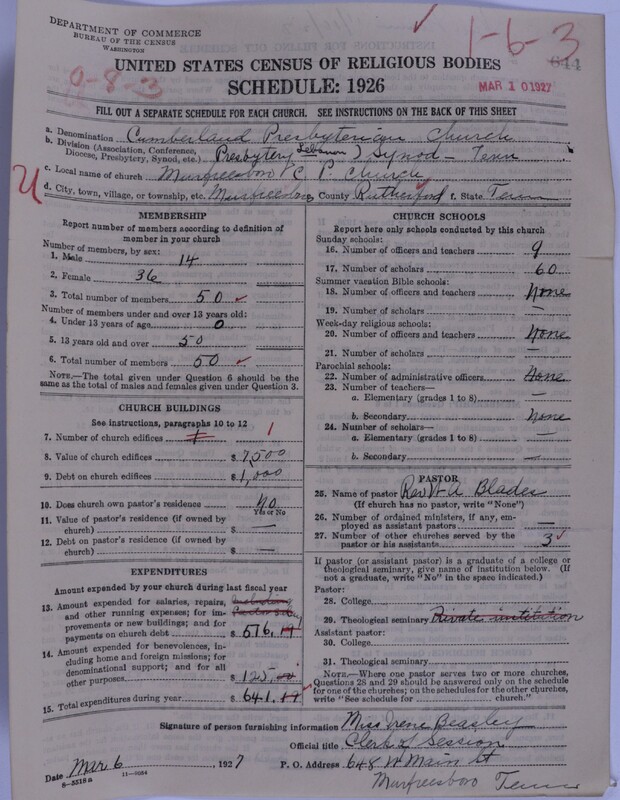 DEPARTMENT OF COMMERCE
BUREAU OF THE CENSUS
WASHINGTON
1-6-3
0-8-3
644
MAR 10 1927
UNITED STATES CENSUS OF RELIGIOUS BODIES
SCHEDULE: 1926
FILL OUT A SEPARATE SCHEDULE FOR EACH CHURCH. SEE INSTRUCTIONS ON THE BACK OF THIS SHEET
a. Denomination Cumberland Presbyterian Church
b. Division (Association, Conference, Diocese, Presbytery, Synod, etc.) Presbytery Lebanon Synod - Tenn
c. Local name of church Murfreesboro C. P. Church
U
d. City, town, village, or township, etc. Murfreesboro e. County Rutherford f. State Tenn
MEMBERSHIP
Report number of members according to definition of
member in your church
Number of members, by sex:
1. Male 14
2. Female 36
3. Total number of members 50
Number of members under and over 13 years old:
4. Under 13 years of age 0
5. 13 years old and over 50
6. Total number of members 50
NOTE.—The total given under Question 6 should be the
same as the total of males and females given under Question 3.
CHURCH BUILDINGS
See instructions, paragraphs 10 to 12
7. Number of church edifices 1 1
8. Value of church edifices $ 7,500
9. Debt on church edifices $ 1,000
10. Does church own pastor's residence? No
Yes or No
11. Value of pastor's residence (if owned by
church) $ —
12. Debt on pastor's residence (if owned by
church) $ —
EXPENDITURES
Amount expended by your church during last fiscal year
13. Amount expended for salaries, repairs,
and other running expenses; for im-
provements or new buildings; and for
payments on church debt $ 516.
14. Amount expended for benevolences, in-
cluding home and foreign missions; for
denominational support; and for all
other purposes $ 125.
15. Total expenditures during year $ 641.
CHURCH SCHOOLS
Report here only schools conducted by this church
Sunday schools:
16. Number of officers and teachers 9
17. Number of scholars 60
Summer vacation Bible schools:
18. Number of officers and teachers None
19. Number of scholars —
Week-day religious schools:
20. Number of officers and teachers None
21. Number of scholars —
Parochial schools:
22. Number of administrative officers None
23. Number of teachers—
a. Elementary (grades 1 to 8) —
b. Secondary None
24. Number of scholars—
a. Elementary (grades 1 to 8) —
b. Secondary —
PASTOR
25. Name of pastor Rev W A Blades
(If church has no pastor, write "None")
26. Number of ordained ministers, if any, em-
ployed as assistant pastors —
27. Number of other churches served by the
pastor or his assistants 3
If pastor (or assistant pastor) is a graduate of a college or
theological seminary, give name of institution below. (If
not a graduate, write "No" in the space indicated.)
Pastor:
28. College
29. Theological seminary Private institution
Assistant pastor:
30. College
31. Theological seminary
NOTE.—Where one pastor serves two or more churches,
Questions 28 and 29 should be answered only on the schedule
for one of the churches; on the schedules for the other churches,
write "See schedule for church."
Signature of person furnishing information Miss Irene Beasley
Official title Clerk of Session
Date Mar 6 1927 P. O. Address 648 W Main St
8-5518a 11-9084
Murfreesboro Tenn